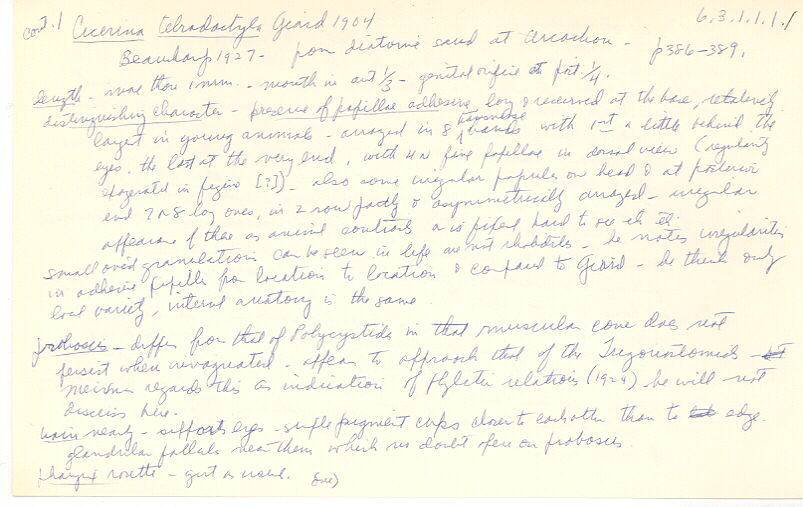 cont. 1 Cicerina tetradactyla Giard 1904 6.3.1.1.1./
Beauchamp 1927 - from diatome sand at Arcachon - p386-389.
length - more than 1 mm. - mouth in ant 1/3 - genital orifice at post. 1/4.
distinguishing character - presence of papillae adhesive, long & recurved at the base, relatively
largest in young animals - arranged in 8 transverse bands with 1st a little behind the
eyes, the last at the very end, with 4 or five papillae in dorsal view (regularity
exagerated in figure [?]) - also some irregular papules on head & at posterior
end 7 or 8 long ones, in 2 rows partly & asymmetrically arranged - irregular
appearance of these as animal contracts or is fixed hard to see etc.
small ovoid granulations can be seen in life are not rhabdites - he notes irregularities
in adhesive papilla from location to location & compared to Giard - he thinks only
local variety, internal anatomy is the same.
proboscis - differs from that of Polycystids in that muscular cone does not
persist when invaginated - appears to approach that of the Trigonostomids -
Meixner regards this as indication of phyletic relations (1924) he will not
discuss here.
brain nearly - supports eyes - simple pigment cups closer to each other than to edge.
glandular near them which no doubt open on proboscis.
pharynx rosette - gut as usual. (over)